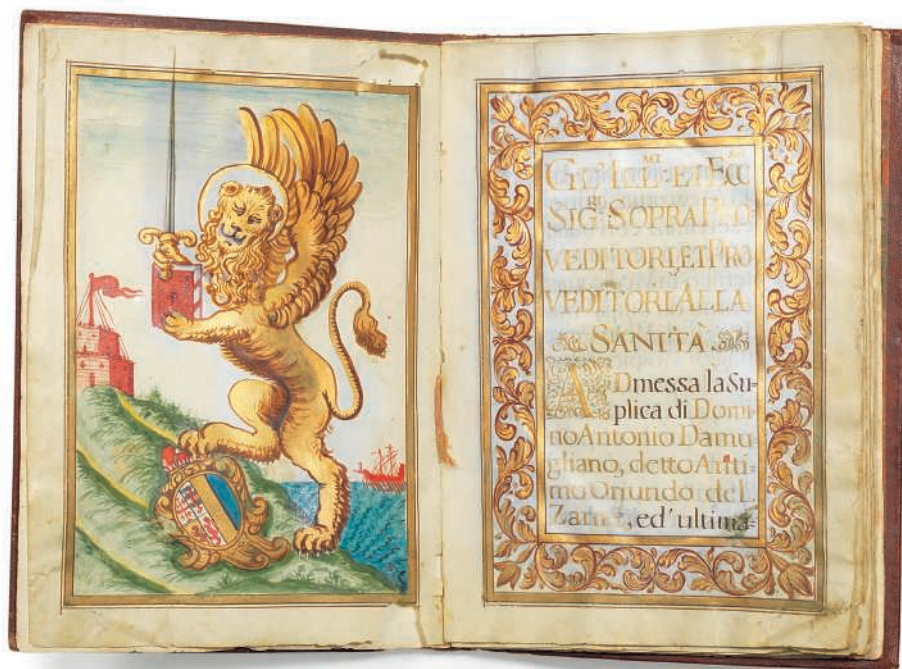 GL' ILL.MI ET ECC.MI
SIG.RI SOPRA PRO-
VEDITORI, ET PRO
VEDITORI ALLA
SANITÀ
ADmessa la Su-
plica di Domi-
no Antonio Damu-
gliano, detto Ariti-
mo Oriundo de
, ed' ultima=